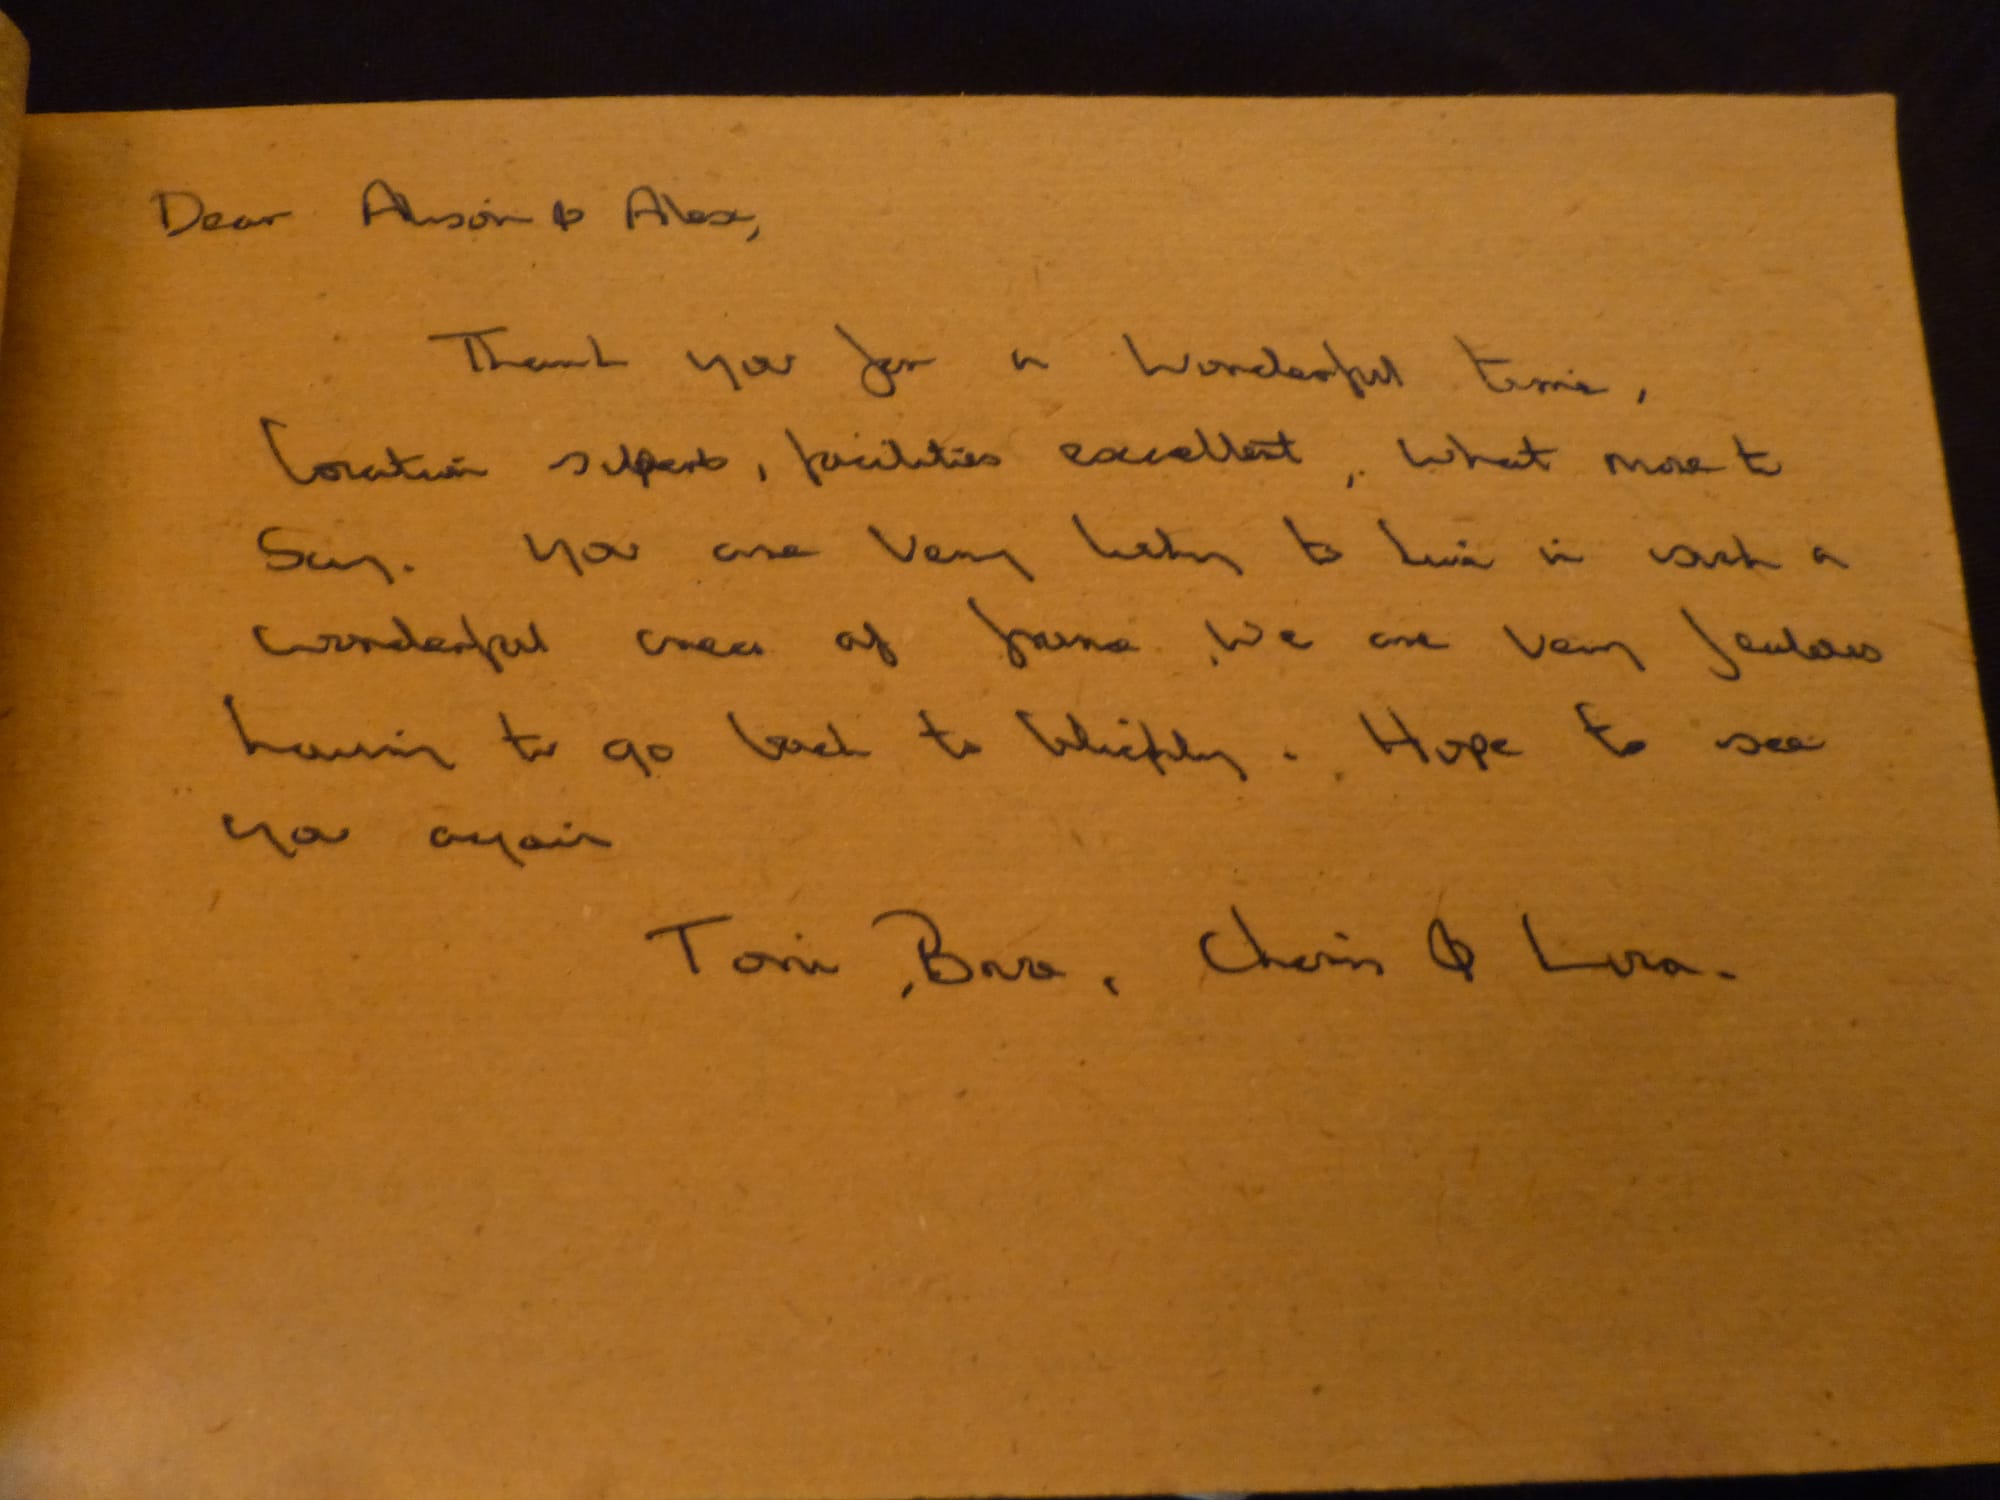 Dear Alison & Alex,
Thank you for a wonderful time,
location superb, facilities excellent, what more to
say. You are very lucky to live in such a
wonderful area of france. We are very jealous
having to go back to blighty. Hope to see
you again
Toni, &